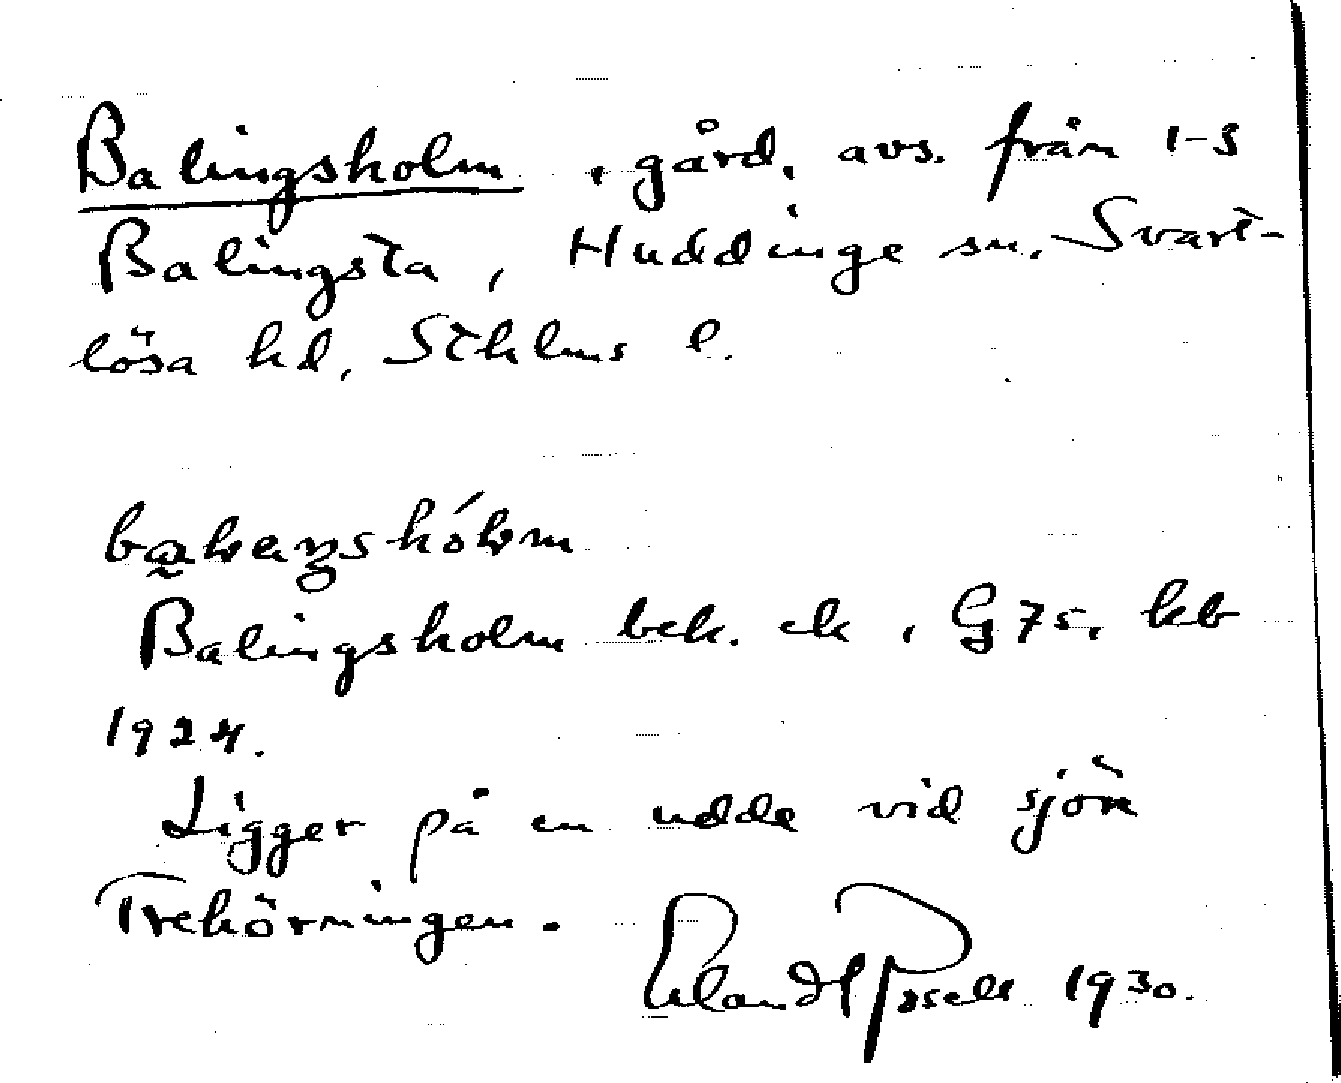 Balingsholm, gård, avs. från 1-3
Balingsta, Huddinge sn. Svart-
lösa hd, Sthlms l.
Balingsholm bek. ek, G 75, kb
1924.
Ligger på en udde vid sjön
Trehörningen.
Erland Rosell 1930.